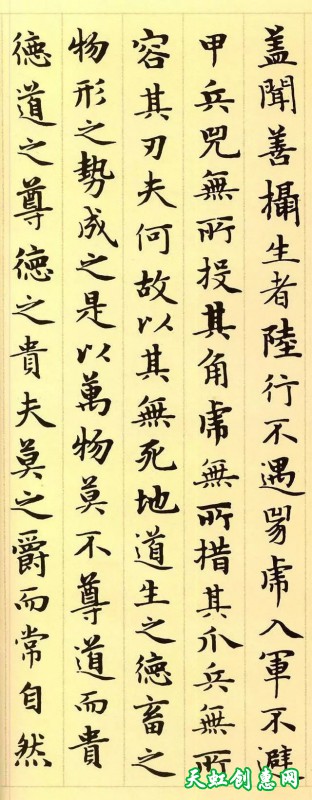 盖聞善攝生者陸行不遇兕虎入軍不避
甲兵兕無所投其角虎無所措其爪兵無所
容其刃夫何故以其無死地道生之德畜之
物形之勢成之是以萬物莫不尊道而貴
德道之尊德之貴夫莫之爵而常自然
天虹创惠网